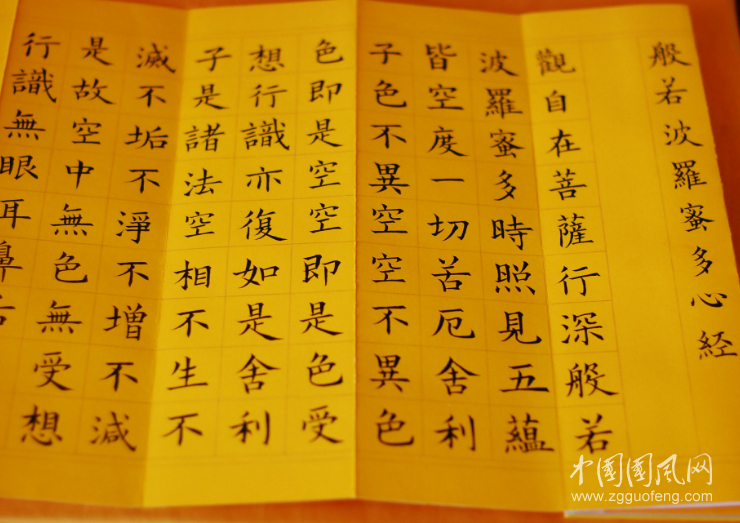 般若波羅蜜多心経
觀自在菩薩行深般若
波羅蜜多時照見五蘊
皆空度一切苦厄舍利
子色不異空空不異色
色即是空空即是色受
想行識亦復如是舍利
子是諸法空相不生不
滅不垢不淨不增不減
是故空中無色無受想
行識無眼耳鼻舌
中国國风网
www.zgguofeng.com